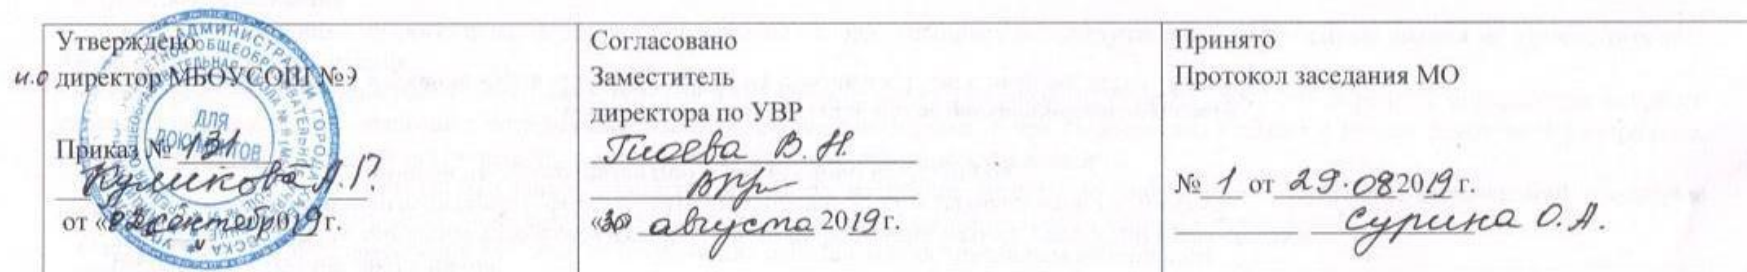 Утверждено
и.о директор МБОУСОШ №9
Приказ № 131
Куликова Л.Г.
от « 02 сентября 2019 г.
ДЛЯ
ДОКУМЕНТОВ
Согласовано
Заместитель
директора по УВР
Тиоева В. Н.
«30 августа 2019 г.
Принято
Протокол заседания МО
№ 1 от 29.082019 г.
Сурина О.А.